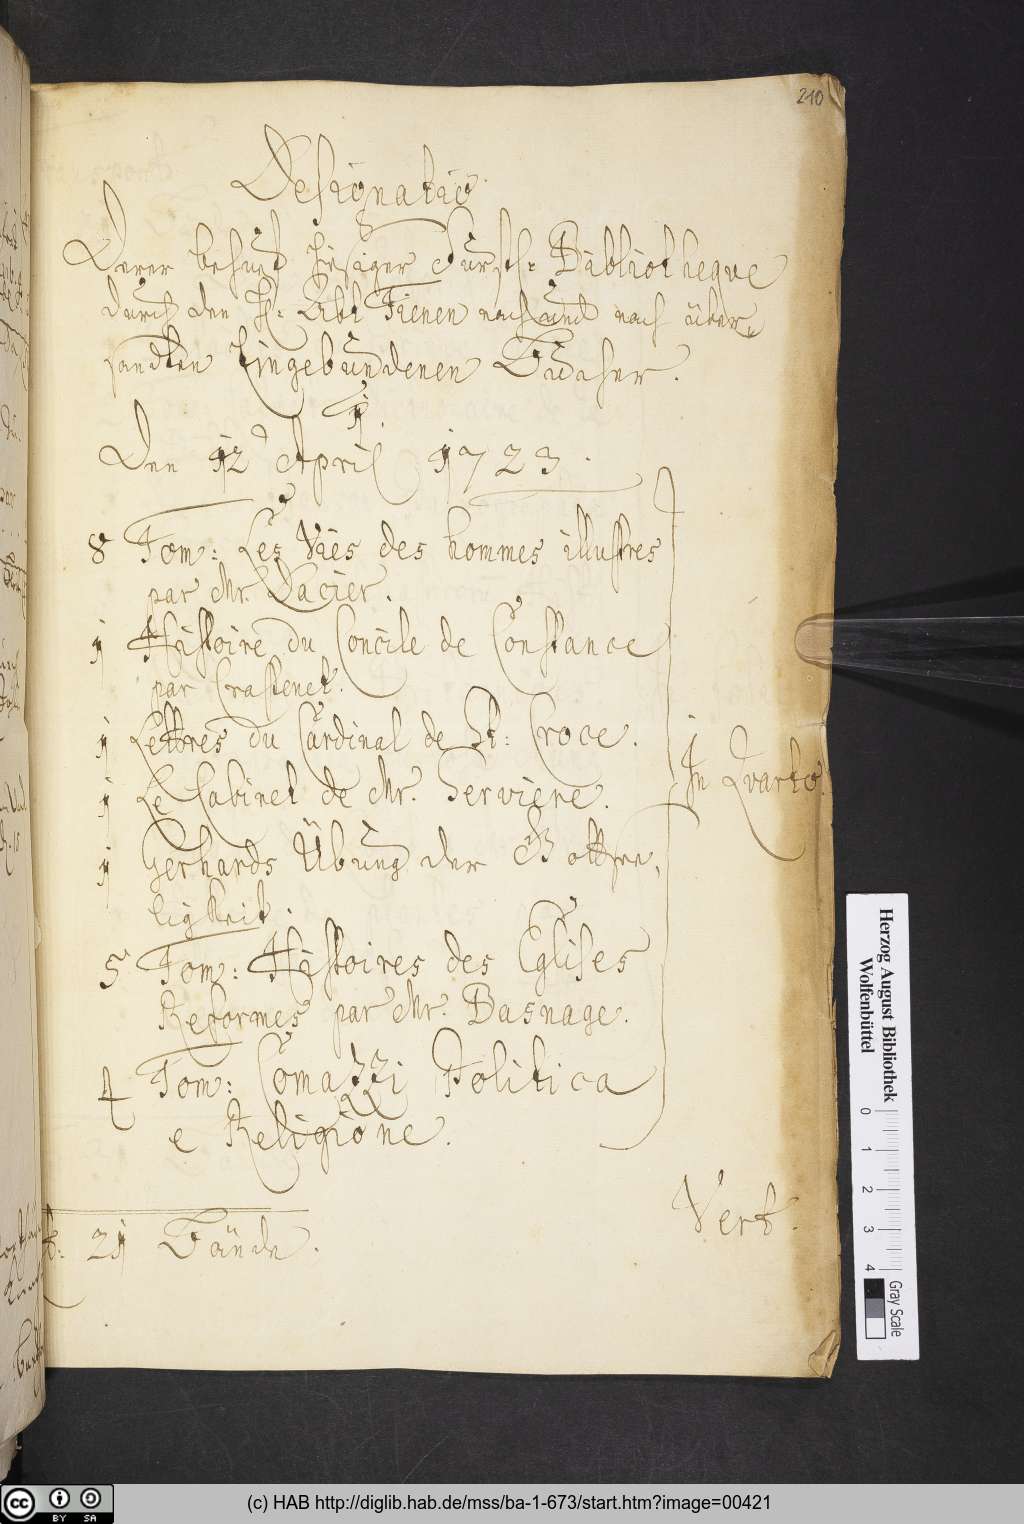 210
Designatio
Derer behuef hiesiger Fürstl: Bibliotheque
durch den H: Abt Tienen nach und nach über,
sandten Eingebundenen Bücher.
1.
Den 12 April 1723.
8 Tom: Les Vies des hommes illustres
par Mr. Dacier.
1 Histoire du Concile de Constance
par Crassenet.
1 Lettres du Cardinal de St: Croce.
1 Le Cabinet de Mr. Serviere.
In Quarto.
1 Gerhards Übung der Gottsee,
ligkeit.
5 Tom: Histoires des Eglises
Reformes par Mr. Basnage.
4 Tom: Comazzi Politica
e Religione.
Vert.
21 Bände.
Herzog August Bibliothek
Wolfenbüttel
0 1 2 3 4
Gray Scale
(c) HAB http://diglib.hab.de/mss/ba-1-673/start.htm?image=00421
cc BY SA